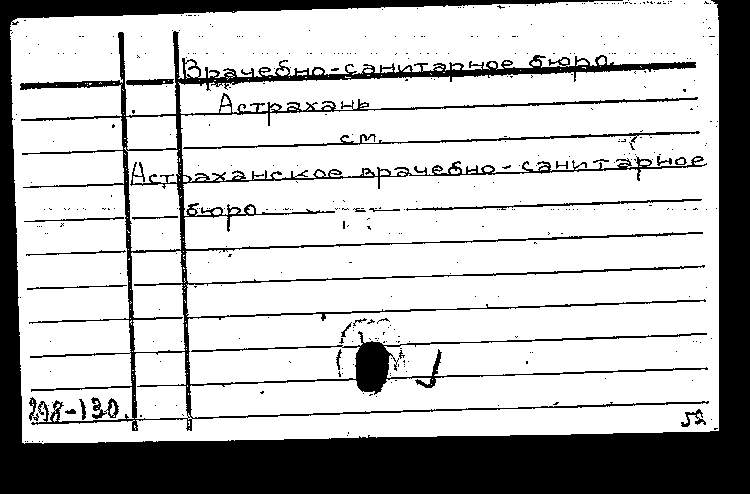 Врачебно-санитарное бюро.
Астрахань
см.
Астраханское врачебно-санитарное
бюро
298-130.
52